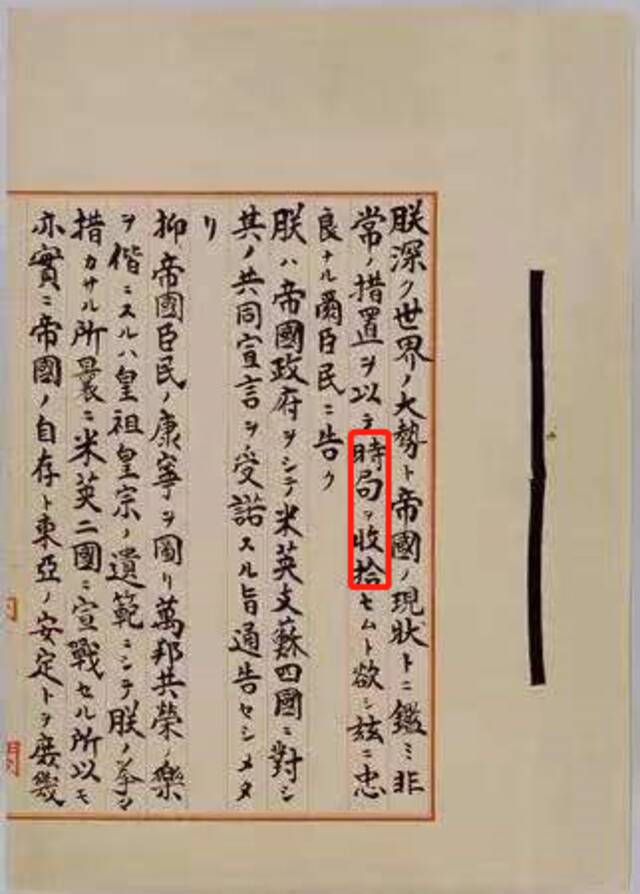 朕深ク世界ノ大勢ト帝國ノ現狀トニ鑑ミ非
常ノ措置ヲ以テ時局ヲ收拾セムト欲シ玆ニ忠
良ナル爾臣民ニ告ク
朕ハ帝國政府ヲシテ米英支蘇四國ニ對シ
其ノ共同宣言ヲ受諾スル旨通告セシメタ
リ
抑帝國臣民ノ康寧ヲ圖リ萬邦共榮ノ樂
ヲ偕ニスルハ皇祖皇宗ノ遺範ニシテ朕ノ拳々
措カサル所曩ニ米英二國ニ宣戰セル所以モ
亦實ニ帝國ノ自存ト東亞ノ安定トヲ庶幾
閣